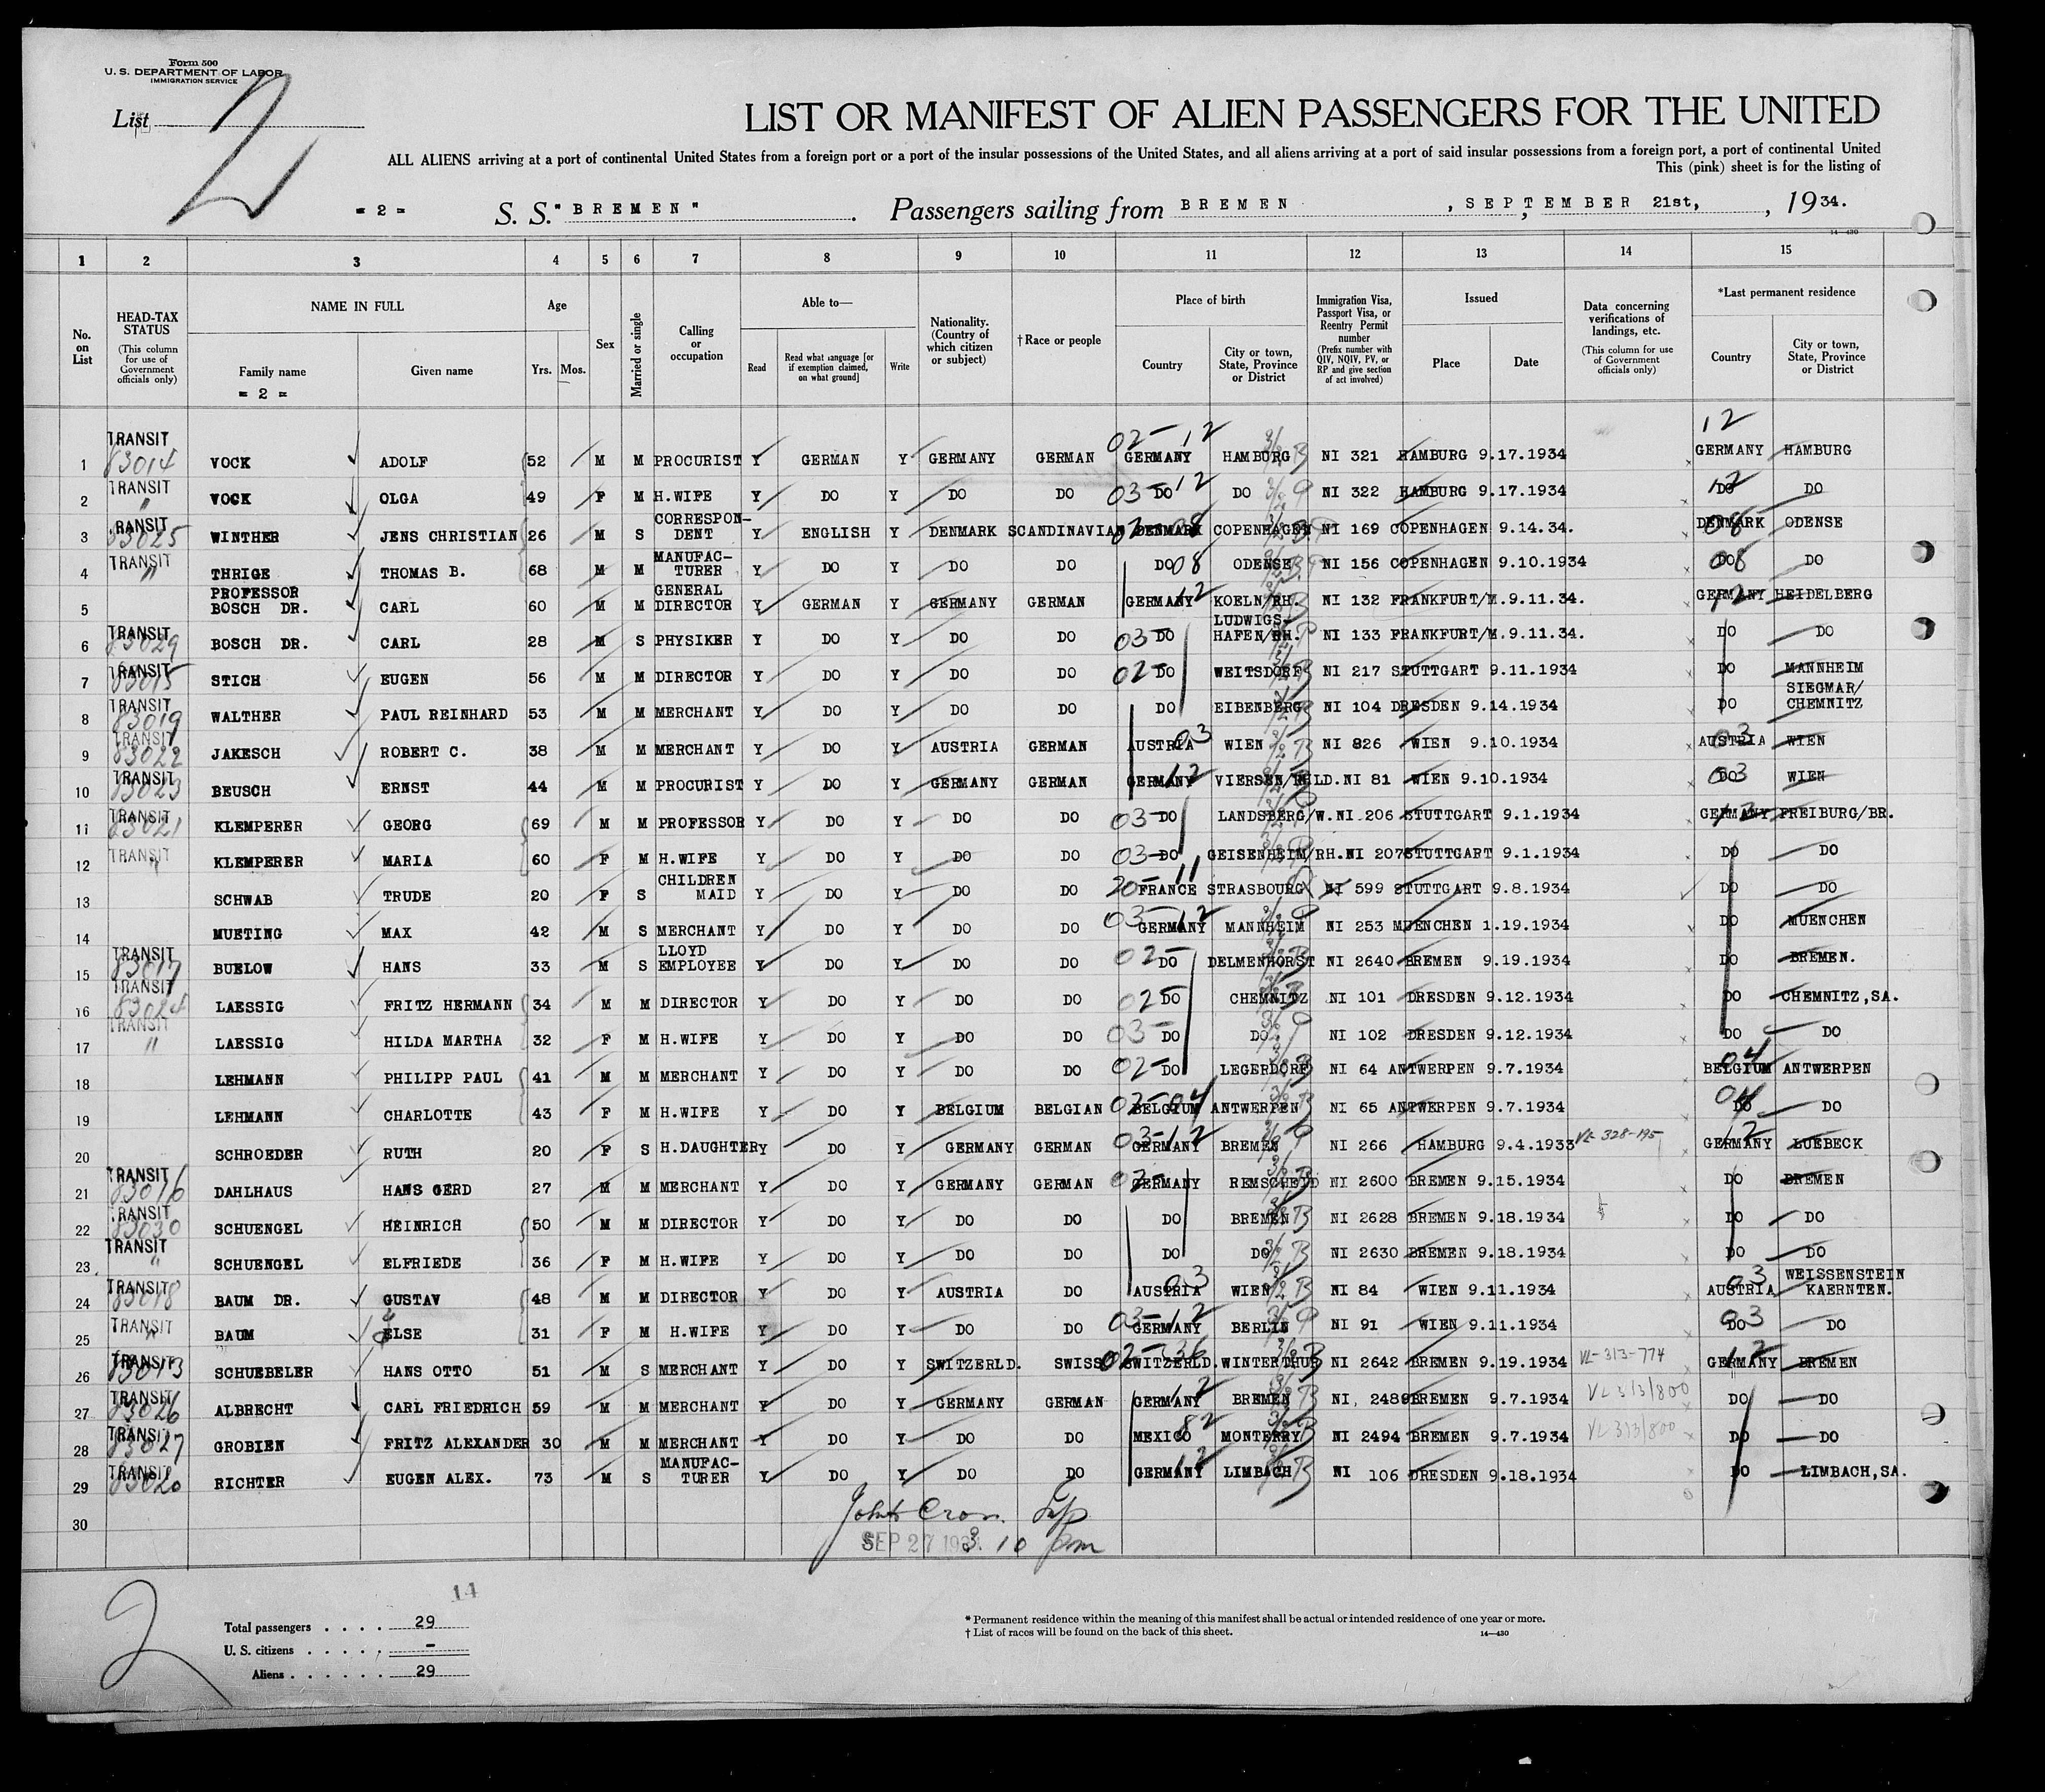 Form 500
U. S. DEPARTMENT OF LABOR
IMMIGRATION SERVICE
List 2
LIST OR MANIFEST OF ALIEN PASSENGERS FOR THE UNITED
ALL ALIENS arriving at a port of continental United States from a foreign port or a port of the insular possessions of the United States, and all aliens arriving at a port of said insular possessions from a foreign port, a port of continental United
This (pink) sheet is for the listing of
= 2 = S. S. "BREMEN". Passengers sailing from BREMEN, SEPTEMBER 21st, 1934.
14—430
1 2 3 4 5 6 7 8 9 10 11 12 13 14 15
No. on List
HEAD-TAX STATUS (This column for use of Government officials only)
NAME IN FULL
Family name
= 2 =
Given name
Age
Yrs. Mos.
Sex
Married or single
Calling or occupation
Able to—
Read
Read what language [or if exemption claimed, on what ground]
Write
Nationality. (Country of which citizen or subject)
†Race or people
Place of birth
Country
City or town, State, Province or District
Immigration Visa, Passport Visa, or Reentry Permit number (Prefix number with QIV, NQIV, PV, or RP and give section of act involved)
Issued
Place
Date
Data concerning verifications of landings, etc. (This column for use of Government officials only)
*Last permanent residence
Country
City or town, State, Province or District
1 TRANSIT 83014 VOCK ADOLF 52 M M PROCURIST Y GERMAN Y GERMANY GERMAN 02-12 GERMANY HAMBURG NI 321 HAMBURG 9.17.1934 12 GERMANY HAMBURG
2 TRANSIT " VOCK OLGA 49 F M H.WIFE Y DO Y DO DO 03-12 DO DO NI 322 HAMBURG 9.17.1934 12 DO DO
3 TRANSIT 83025 WINTHER JENS CHRISTIAN 26 M S CORRESPONDENT Y ENGLISH Y DENMARK SCANDINAVIAN 02-08 DENMARK COPENHAGEN NI 169 COPENHAGEN 9.14.34. 08 DENMARK ODENSE
4 TRANSIT " THRIGE THOMAS B. 68 M M MANUFAC-TURER Y DO Y DO DO DO 08 ODENSE NI 156 COPENHAGEN 9.10.1934 08 DO DO
5 PROFESSOR BOSCH DR. CARL 60 M M GENERAL DIRECTOR Y GERMAN Y GERMANY GERMAN GERMANY 12 KOELN/RH. NI 132 FRANKFURT/M. 9.11.34. GERMANY 12 HEIDELBERG
6 TRANSIT 83029 BOSCH DR. CARL 28 M S PHYSIKER Y DO Y DO DO 03- DO LUDWIGS-HAFEN/RH. NI 133 FRANKFURT/M. 9.11.34. DO DO
7 TRANSIT 83015 STICH EUGEN 56 M M DIRECTOR Y DO Y DO DO 02- DO WEITSDORF NI 217 STUTTGART 9.11.1934 DO MANNHEIM
8 TRANSIT 83019 WALTHER PAUL REINHARD 53 M M MERCHANT Y DO Y DO DO DO EIBENBERG NI 104 DRESDEN 9.14.1934 DO SIEGMAR/CHEMNITZ
9 TRANSIT 83022 JAKESCH ROBERT C. 38 M M MERCHANT Y DO Y AUSTRIA GERMAN AUSTRIA 03 WIEN NI 826 WIEN 9.10.1934 AUSTRIA 03 WIEN
10 TRANSIT 83023 BEUSCH ERNST 44 M M PROCURIST Y DO Y GERMANY GERMAN GERMANY 12 VIERSEN/RHLD. NI 81 WIEN 9.10.1934 DO 03 WIEN
11 TRANSIT 83021 KLEMPERER GEORG 69 M M PROFESSOR Y DO Y DO DO 03- DO LANDSBERG/W. NI 206 STUTTGART 9.1.1934 GERMANY 12 FREIBURG/BR.
12 TRANSIT " KLEMPERER MARIA 60 F M H.WIFE Y DO Y DO DO 03- DO GEISENHEIM/RH. NI 207 STUTTGART 9.1.1934 DO DO
13 SCHWAB TRUDE 20 F S CHILDREN MAID Y DO Y DO DO 20-11 FRANCE STRASBOURG NI 599 STUTTGART 9.8.1934 DO DO
14 MUETING MAX 42 M S MERCHANT Y DO Y DO DO 03-12 GERMANY MANNHEIM NI 253 MUENCHEN 1.19.1934 DO MUENCHEN
15 TRANSIT 83017 BUELOW HANS 33 M S LLOYD EMPLOYEE Y DO Y DO DO 02- DO DELMENHORST NI 2640 BREMEN 9.19.1934 DO BREMEN.
16 TRANSIT 83024 LAESSIG FRITZ HERMANN 34 M M DIRECTOR Y DO Y DO DO 02- DO CHEMNITZ NI 101 DRESDEN 9.12.1934 DO CHEMNITZ,SA.
17 TRANSIT " LAESSIG HILDA MARTHA 32 F M H.WIFE Y DO Y DO DO 03- DO DO NI 102 DRESDEN 9.12.1934 DO DO
18 LEHMANN PHILIPP PAUL 41 M M MERCHANT Y DO Y DO DO 02- DO LEGERDORF NI 64 ANTWERPEN 9.7.1934 04 BELGIUM ANTWERPEN
19 LEHMANN CHARLOTTE 43 F M H.WIFE Y DO Y BELGIUM BELGIAN 02-04 BELGIUM ANTWERPEN NI 65 ANTWERPEN 9.7.1934 04 DO DO
20 SCHROEDER RUTH 20 F S H.DAUGHTER Y DO Y GERMANY GERMAN 03-12 GERMANY BREMEN NI 266 HAMBURG 9.4.1933 VL-328-195 12 GERMANY LUEBECK
21 TRANSIT 83016 DAHLHAUS HANS GERD 27 M M MERCHANT Y DO Y GERMANY GERMAN 02- GERMANY REMSCHEID NI 2600 BREMEN 9.15.1934 DO BREMEN
22 TRANSIT 83030 SCHUENGEL HEINRICH 50 M M DIRECTOR Y DO Y DO DO DO BREMEN NI 2628 BREMEN 9.18.1934 DO DO
23 TRANSIT " SCHUENGEL ELFRIEDE 36 F M H.WIFE Y DO Y DO DO DO DO NI 2630 BREMEN 9.18.1934 DO DO
24 TRANSIT 83018 BAUM DR. GUSTAV 48 M M DIRECTOR Y DO Y AUSTRIA DO AUSTRIA 03 WIEN NI 84 WIEN 9.11.1934 AUSTRIA 03 WEISSENSTEIN KAERNTEN.
25 TRANSIT " BAUM ELSE 31 F M H.WIFE Y DO Y DO DO 03-12 GERMANY BERLIN NI 91 WIEN 9.11.1934 03 DO DO
26 TRANSIT 83013 SCHUEBELER HANS OTTO 51 M S MERCHANT Y DO Y SWITZERLD. SWISS 02-36 SWITZERLD. WINTERTHUR NI 2642 BREMEN 9.19.1934 VL-313-774 12 GERMANY BREMEN
27 TRANSIT 83026 ALBRECHT CARL FRIEDRICH 59 M M MERCHANT Y DO Y GERMANY GERMAN 12 GERMANY BREMEN NI 2489 BREMEN 9.7.1934 VL313/800 DO DO
28 TRANSIT 83027 GROBIEN FRITZ ALEXANDER 30 M M MERCHANT Y DO Y DO DO 82 MEXICO MONTERRY NI 2494 BREMEN 9.7.1934 VL313/800 DO DO
29 TRANSIT 83020 RICHTER EUGEN ALEX. 73 M S MANUFAC-TURER Y DO Y DO DO 12 GERMANY LIMBACH NI 106 DRESDEN 9.18.1934 DO LIMBACH,SA.
30
SEP 27 193
10 pm
2
14
Total passengers . . . . 29
U. S. citizens . . . . —
Aliens . . . . . . 29
* Permanent residence within the meaning of this manifest shall be actual or intended residence of one year or more.
† List of races will be found on the back of this sheet.
14—430